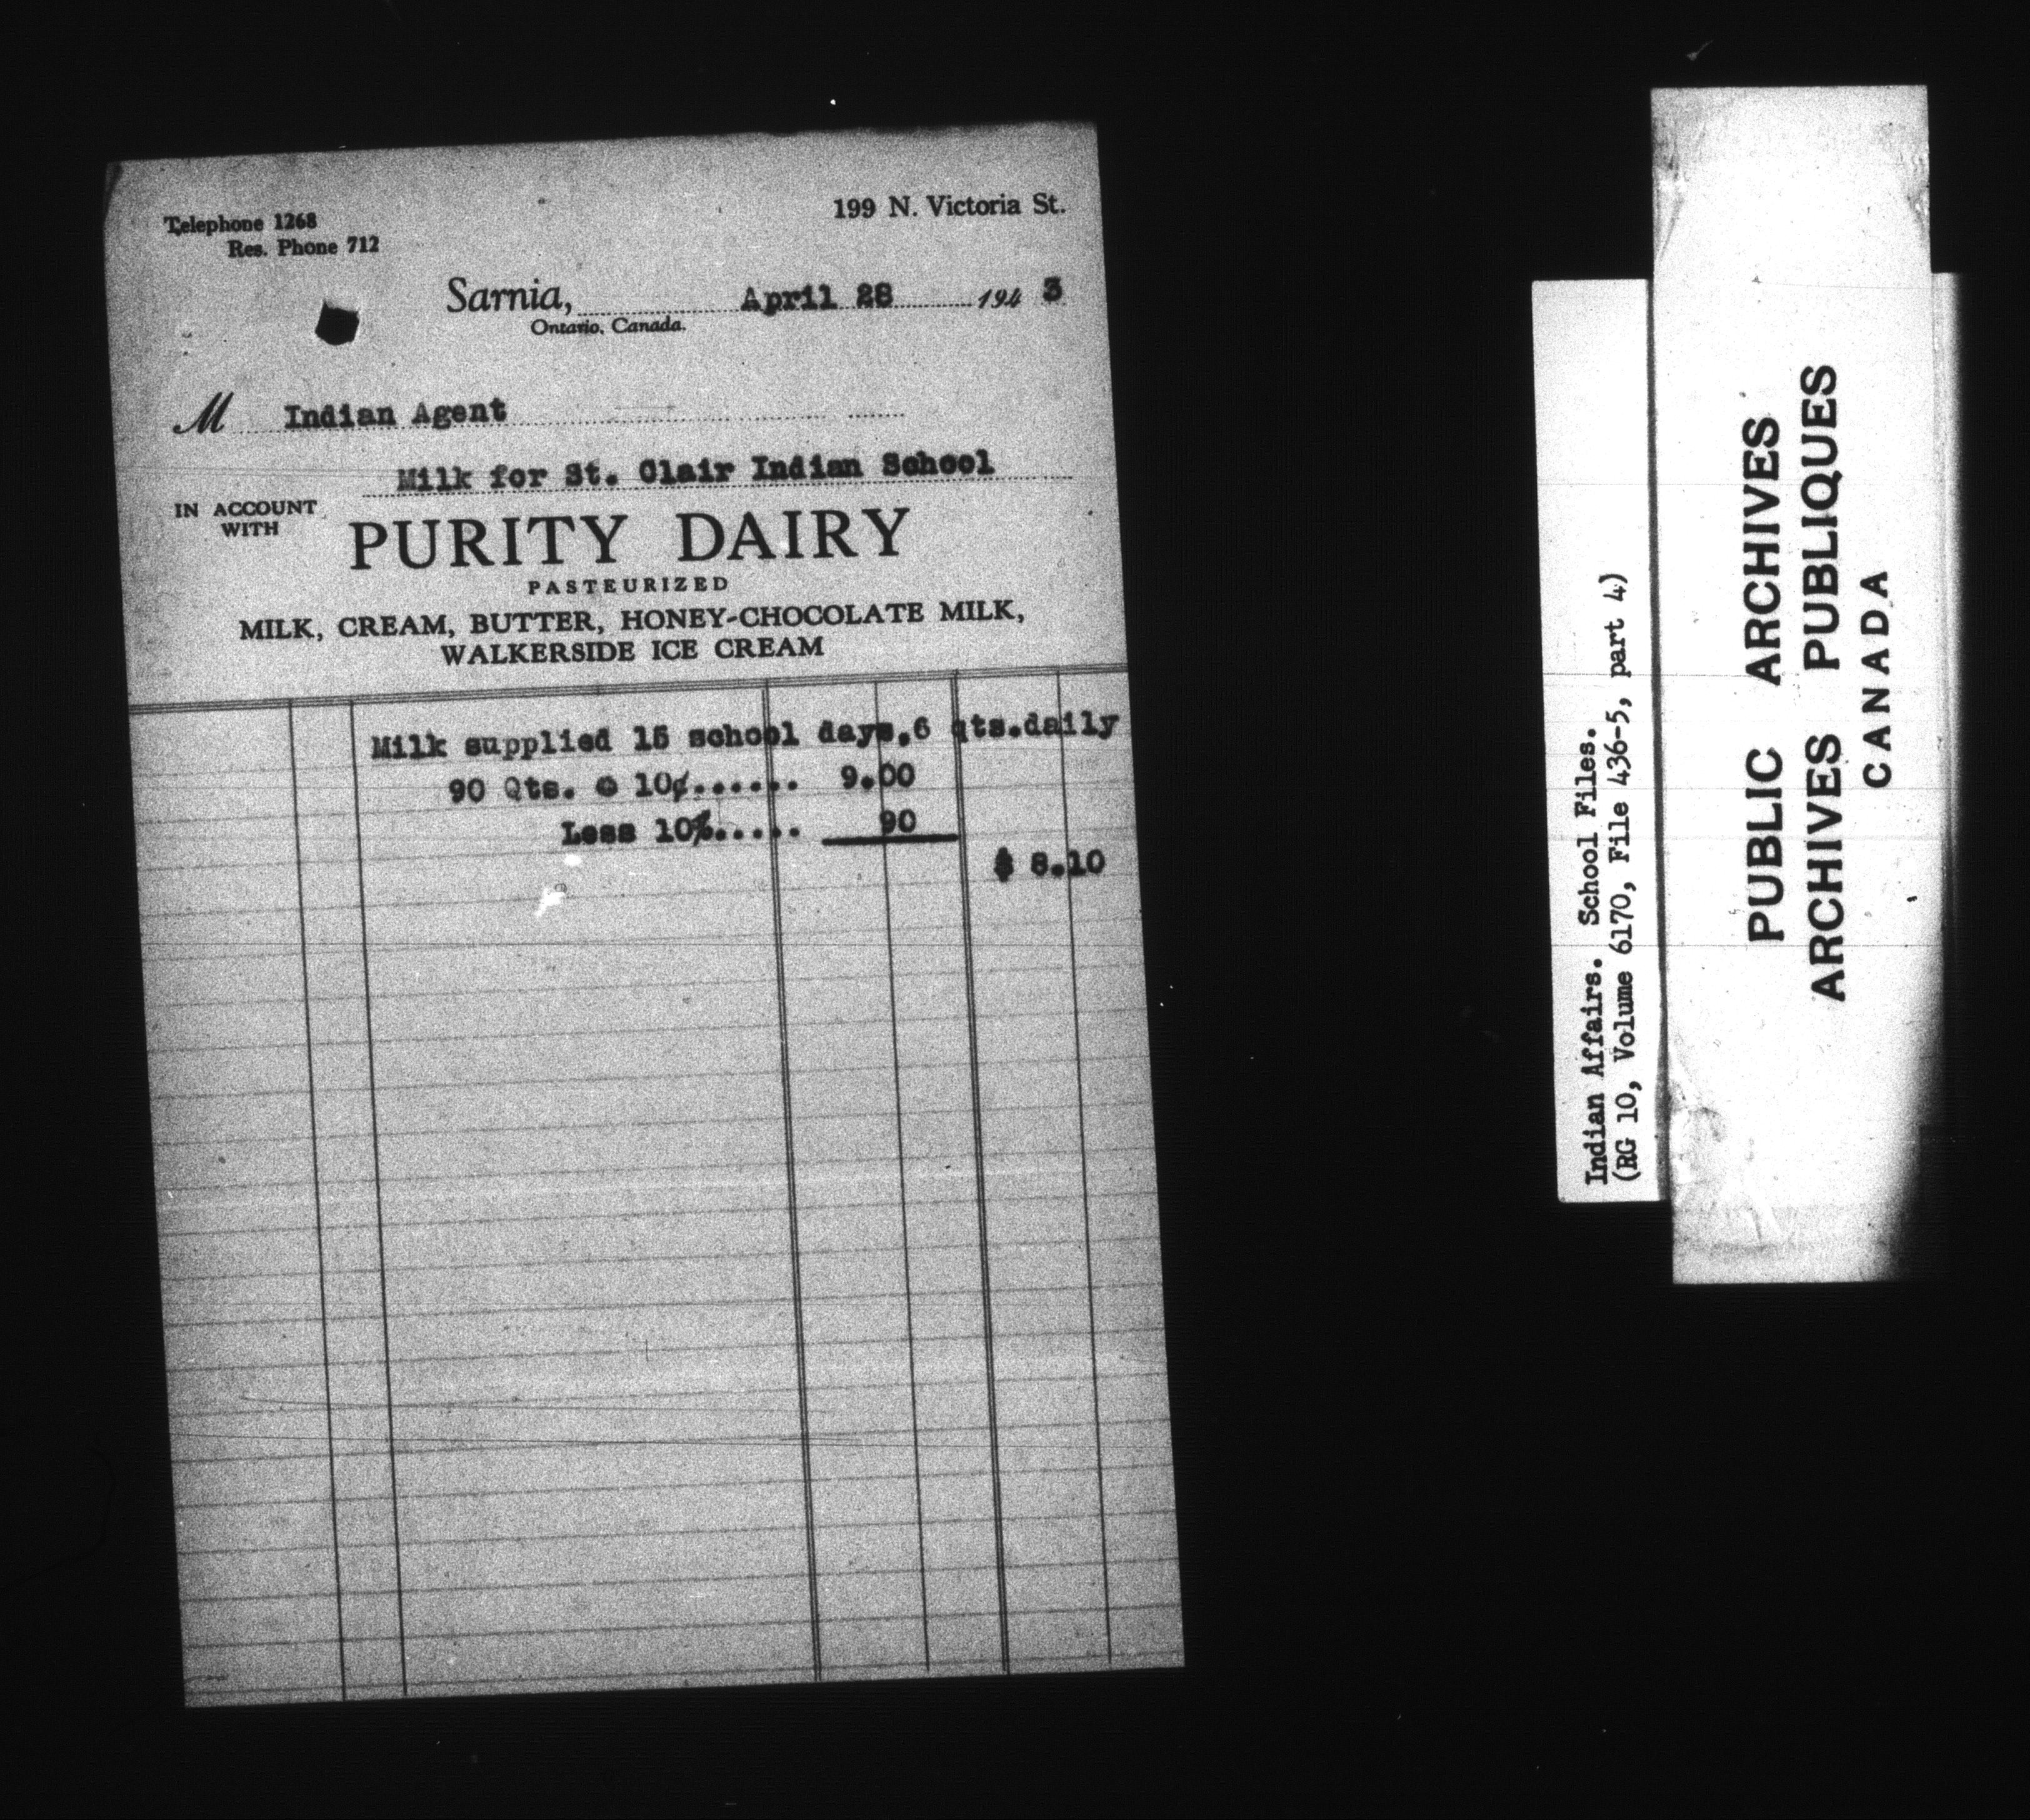 Telephone 1268
Res. Phone 712
199 N. Victoria St.
Sarnia, April 28 194 3
Ontario, Canada.
M Indian Agent
Milk for St. Clair Indian School
IN ACCOUNT
WITH
PURITY DAIRY
PASTEURIZED
MILK, CREAM, BUTTER, HONEY-CHOCOLATE MILK,
WALKERSIDE ICE CREAM
Milk supplied 15 school days,6 qts.daily
90 Qts. @ 10¢...... 9.00
Less 10%..... 90
$ 8.10
Indian Affairs. School Files.
(RG 10, Volume 6170, File 436-5, part 4)
PUBLIC ARCHIVES
ARCHIVES PUBLIQUES
CANADA